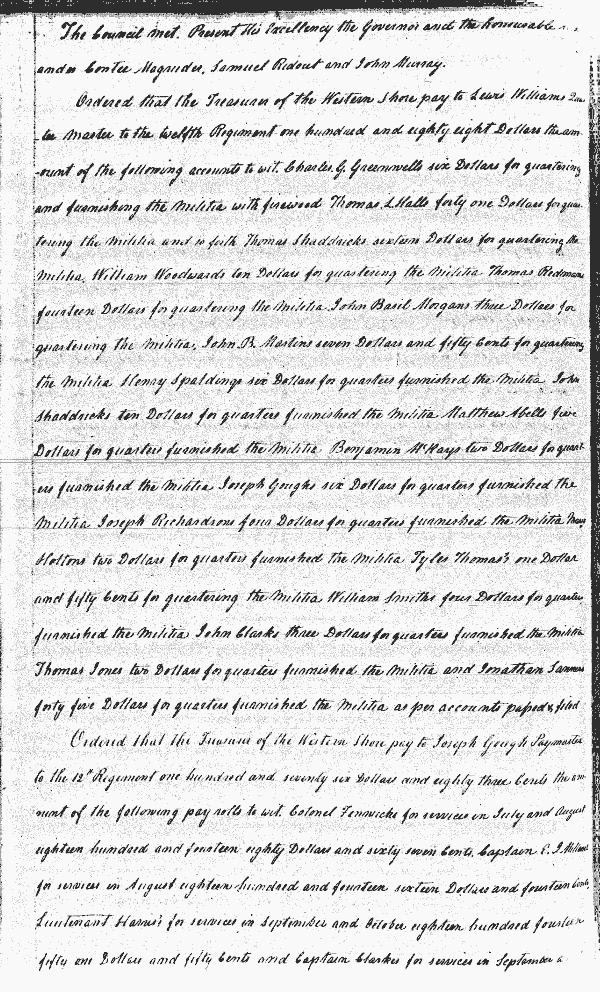 The Council met. Present His Excellency the Governor and the honourable
ander Contee Magruder, Samuel Ridout and John Murray.
Ordered that the Treasurer of the Western Shore pay to Lewis Williams Quar
ter Master to the twelfth Regiment one hundred and eighty eight Dollars the am-
-ount of the following accounts to wit. Charles. G. Greenwells six Dollars for quartering
and furnishing the Militia with firewood Thomas. L Halls forty one Dollars for quar-
tering the Militia and so forth Thomas Shaddricks sixteen Dollars for quartering the
Militia, William Woodwards ten Dollars for quartering the Militia Thomas Redmans
fourteen Dollars for quartering the Militia John Basil Morgans three Dollars for
quartering the Militia, John B. Martins seven Dollars and fifty Cents for quartering
the Militia Henry Spaldings six Dollars for quarters furnished the Militia John
Shaddricks ten Dollars for quarters furnished the Militia Matthew Abells five
Dollars for quarters furnished the Militia Benjamin McKays two Dollars for quart-
ers furnished the Militia Joseph Goughs six Dollars for quarters furnished the
Militia Joseph Richardsons four Dollars for quarters furnished the Militia
Holtons two Dollars for quarters furnished the Militia Tyler Thomas's one Dollar
and fifty Cents for quartering the Militia William Smiths four Dollars for quarters
furnished the Militia John Clarks three Dollars for quarters furnished the Militia
Thomas Jones two Dollars for quarters furnished the Militia and Jonathan
forty five Dollars for quarters furnished the Militia as per accounts passed & filed
Ordered that the Treasurer of the Western Shore pay to Joseph Gough Paymaster
to the 12th Regiment one hundred and seventy six Dollars and eighty three Cents the am-
ount of the following pay rolls to wit. Colonel Fenwicks for services in July and August
eighteen hundred and fourteen eighty Dollars and sixty seven Cents, Captain E. J. Millards
for services in August eighteen hundred and fourteen sixteen Dollars and fourteen Cents
Lieutenant Harris's for services in September and October eighteen hundred fourteen
fifty one Dollars and fifty Cents and Captain Clarkes for services in September